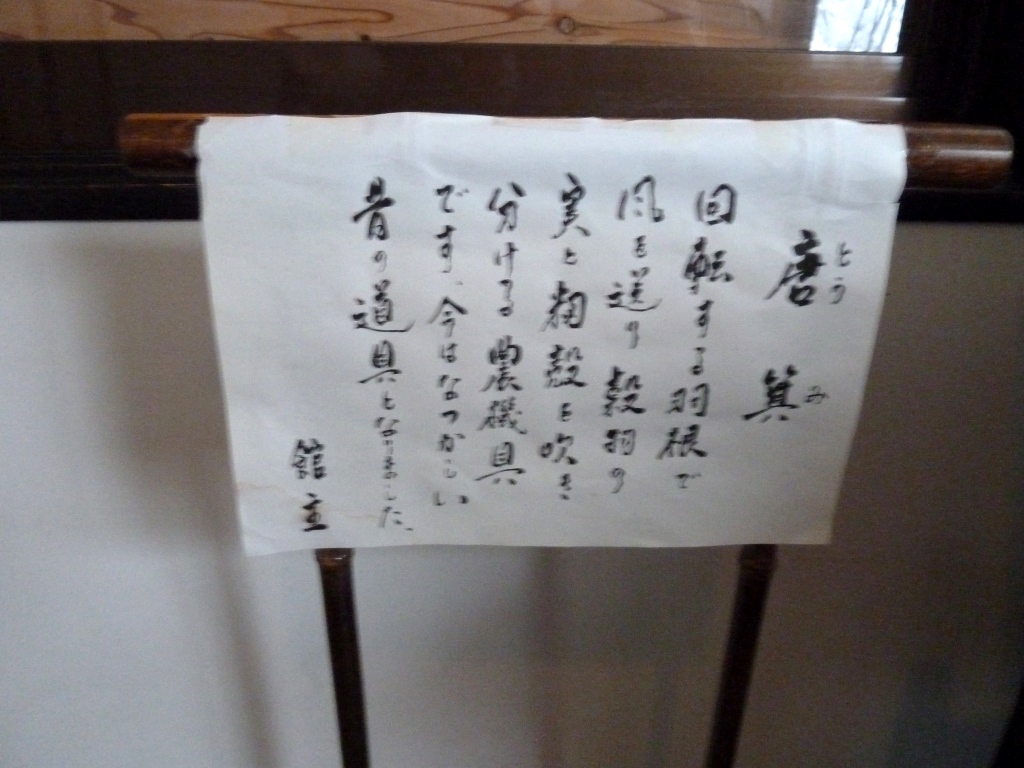 唐箕
とうみ
回転する羽根で
風を送り穀物の
実と籾殻を吹き
分ける農機具
です、今はなつかしい
昔の道具となりました、
館主